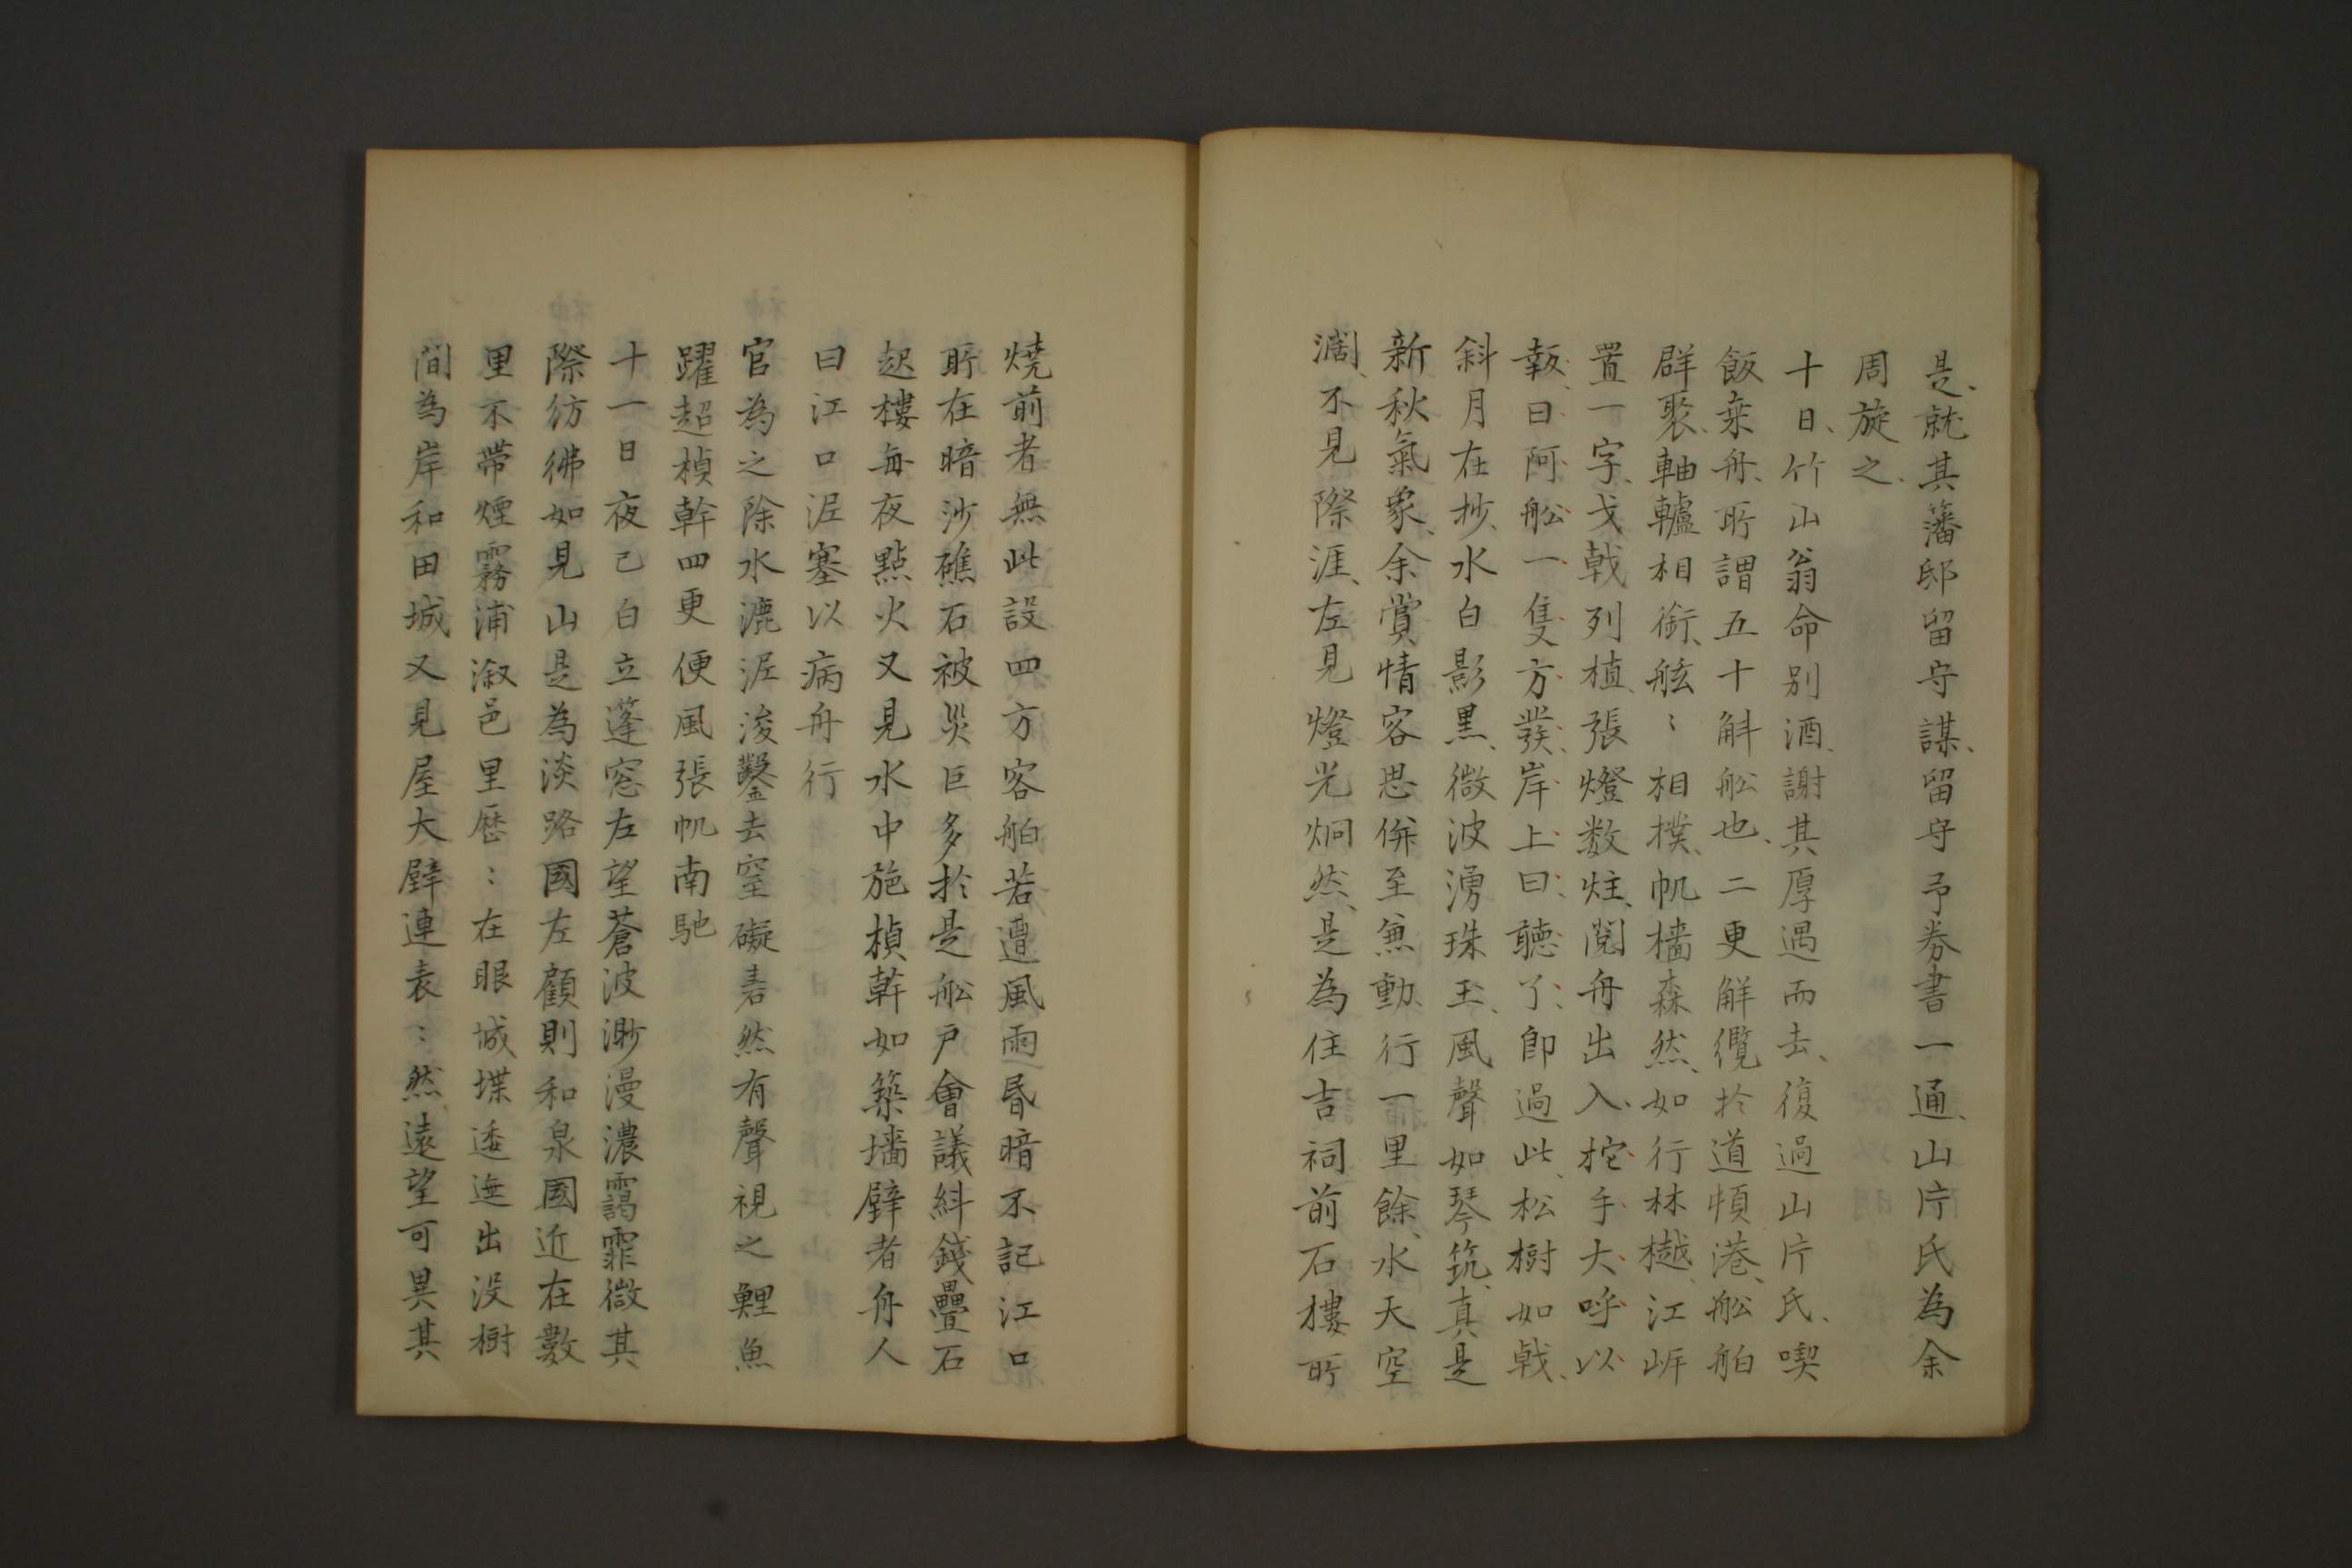 是、就其藩邸留守謀、留守予券書一通、山片氏為余
周旋之、
十日、竹山翁命別酒、謝其厚遇而去、復過山片氏、喫
飯乗舟、所謂五十斛舩也、二更解纜於道頓港、舩舶
群聚、軸轤相銜、舷〻相撲、帆檣森然、如行林樾、江岸
置一字、戈戟列植、張燈数炷、閲舟出入、柁手大呼以
報、曰阿舩一隻方発、岸上曰聴了、即過此、松樹如戟、
斜月在抄、水白影黒、微波湧珠玉、風聲如琴筑、真是
新秋氣象、余賞情客思併至兼動、行一里餘、水天空
濶、不見際涯、左見燈光炯然、是為住吉祠前石樓所
燒前者無此設四方客舶若遭風雨昏暗不記江口
所在暗沙礁石被災巨多於是舩戸會議糾錢疊石
起樓毎夜點火又見水中施楨幹如築墻壁者舟人
曰江口泥塞以病舟行
官為之除水漉泥浚鑿去窒礙砉然有聲視之鯉魚
躍超楨幹四更便風張帆南馳
十一日夜已白立蓬窓左望蒼波渺漫濃靄霏微其
際彷彿如見山是為淡路國左顧則和泉國近在數
里不帶煙霧浦溆邑里歴〻在眼城堞逶迤出没樹
間為岸和田城又見屋大壁連表〻然遠望可異其